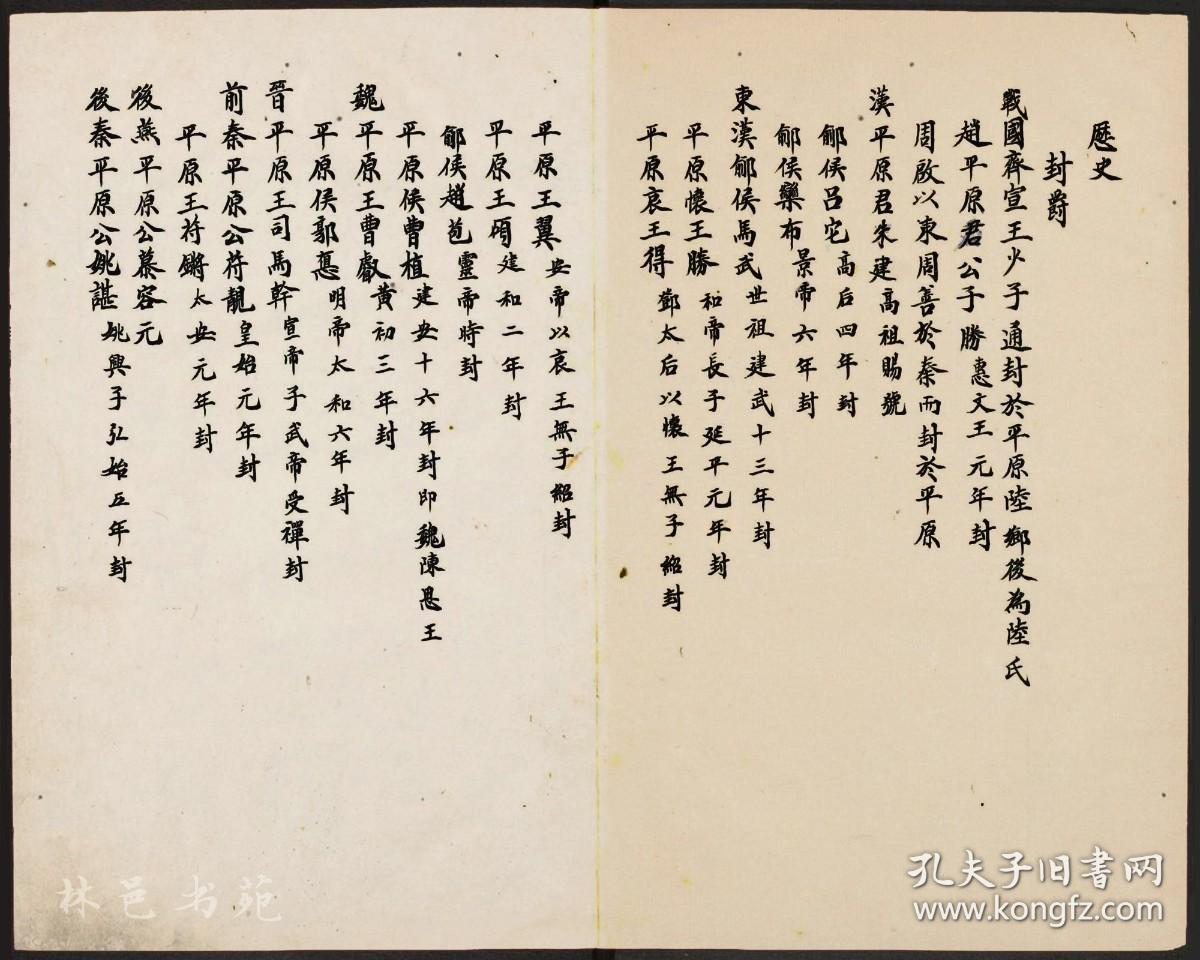 歷史
封爵
戰國齊宣王少子通封於平原陸鄉後為陸氏
趙平原君公子勝惠文王元年封
周啟以東周善於秦而封於平原
漢平原君朱建高祖賜號
鄃侯呂它高后四年封
鄃侯欒布景帝六年封
東漢鄃侯馬武世祖建武十三年封
平原懷王勝和帝長子延平元年封
平原哀王得鄧太后以懷王無子紹封
平原王翼安帝以哀王無子紹封
平原王碩建和二年封
鄃侯趙苞靈帝時封
平原侯曹植建安十六年封即魏陳思王
魏平原王曹叡黃初三年封
平原侯郭悳明帝太和六年封
晉平原王司馬幹宣帝子武帝受禪封
前秦平原公苻靚皇始元年封
平原王苻鏘太安元年封
後燕平原公慕容元
後秦平原公姚諶姚興子弘始五年封
孔夫子旧书网
www.kongfz.com
林邑书苑